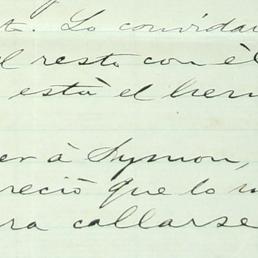 t. Lo convidar
el resto con él
está el her
er á Symon,
reció que lo
ra callarse